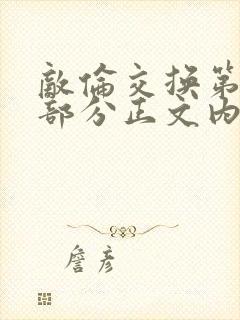 敵倫交換第
部分正文內
詹彥